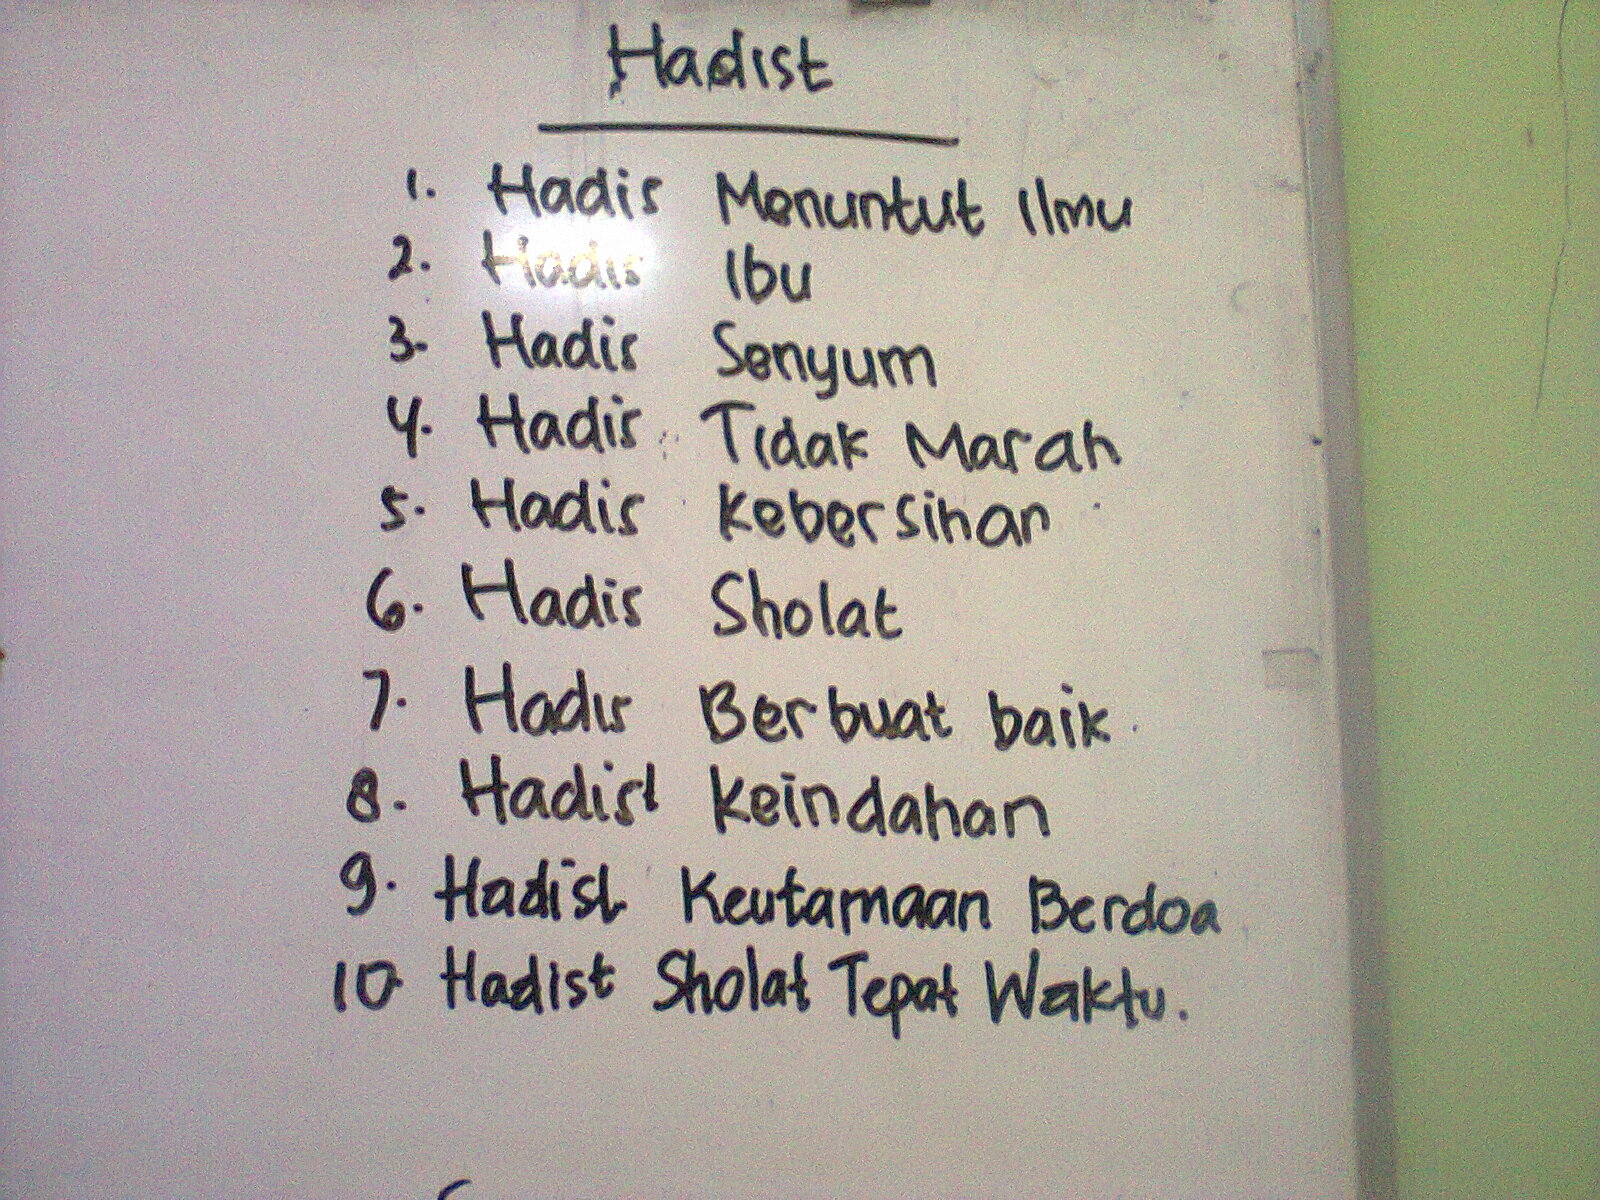 Hadist
1. Hadis Menuntut Ilmu
2. Hadis Ibu
3. Hadis Senyum
4. Hadis Tidak Marah
5. Hadis Kebersihan
6. Hadis Sholat
7. Hadis Berbuat baik
8. Hadist Keindahan
9. Hadist Keutamaan Berdoa
10 Hadist Sholat Tepat Waktu.